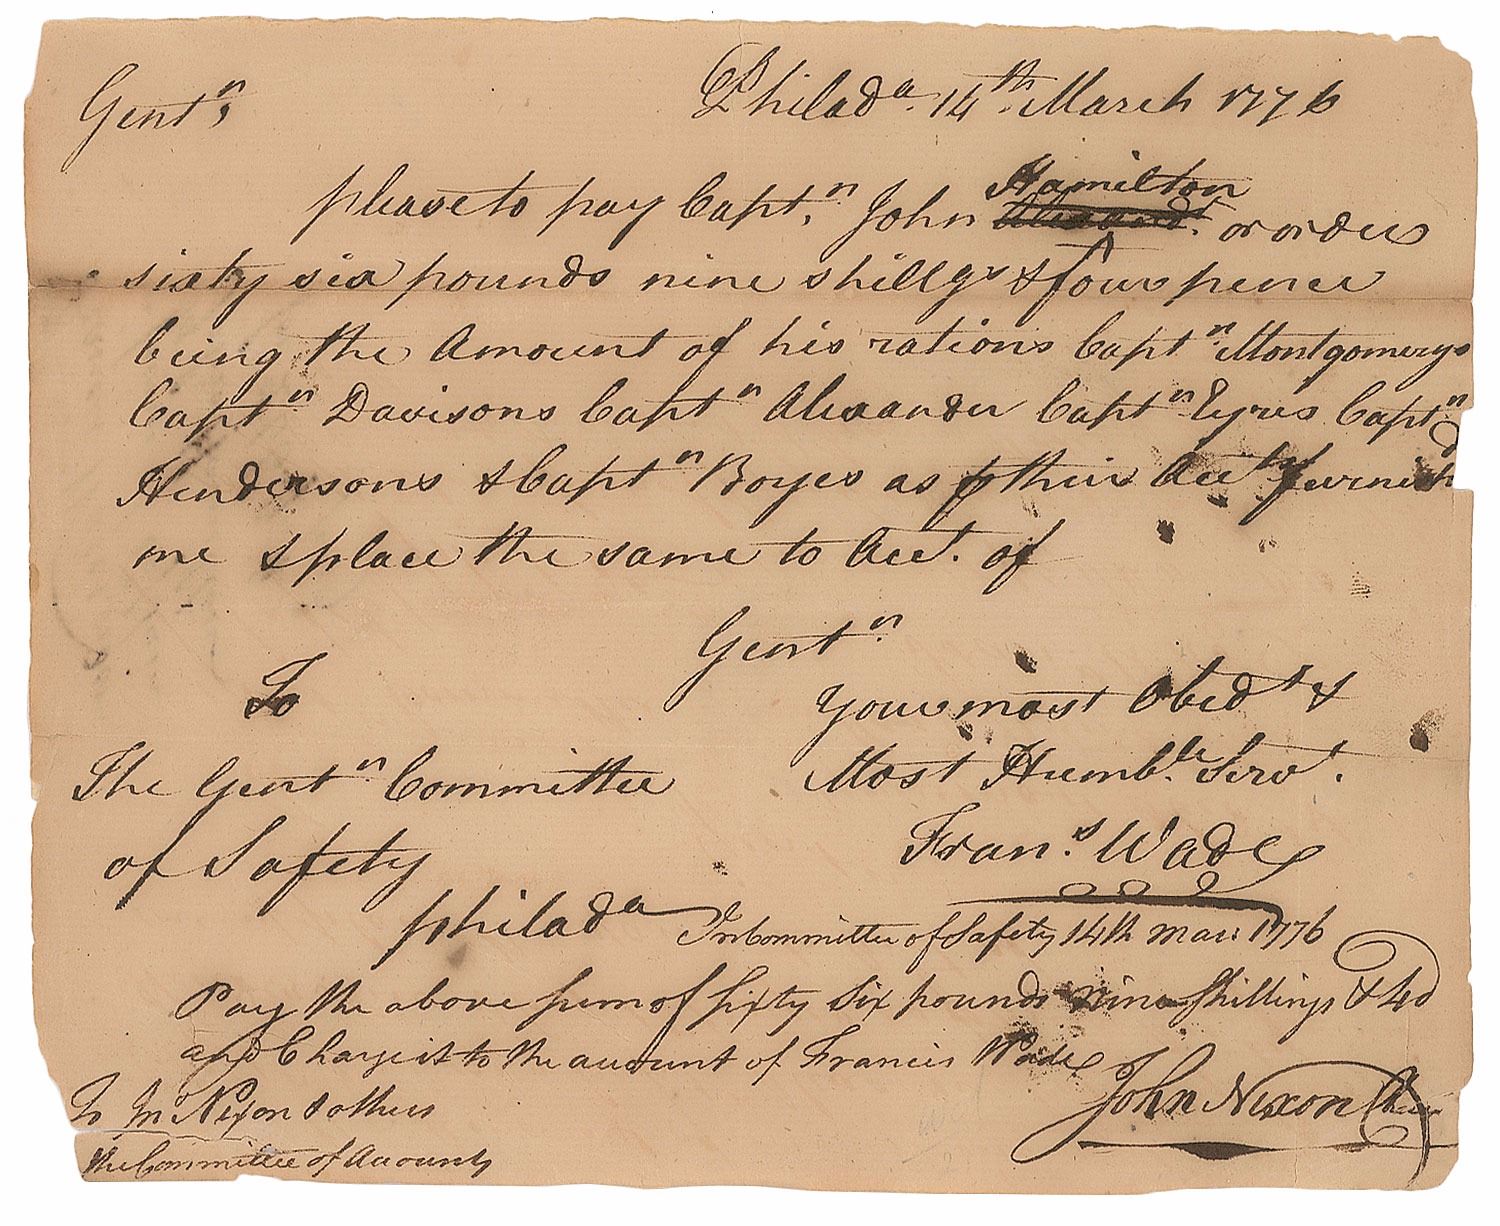 Gentn,
Philada. 14th. March 1776
please to pay Captn. John Hamilton or order
sixty six pounds nine shillgs & four pence
being the Amount of his rations Captn Montgomerys
Captn Davisons Captn Alexander Captn Eyres Captn
Hendersons & Captn Boyes as p their Acct furnishd
me & place the same to Acct. of
Gentn
To
your most Obedt &
The Gentn Committee
Most Humble. Servt.
of Safety
Frans. Wade
philada
In Committee of Safety 14th mar: 1776
Pay the above sum of sixty six pounds nine shillings & 4d
and Charge it to the account of Francis Wade
To Mr Nixon & others
John Nixon Chair
the Committee of Accounts